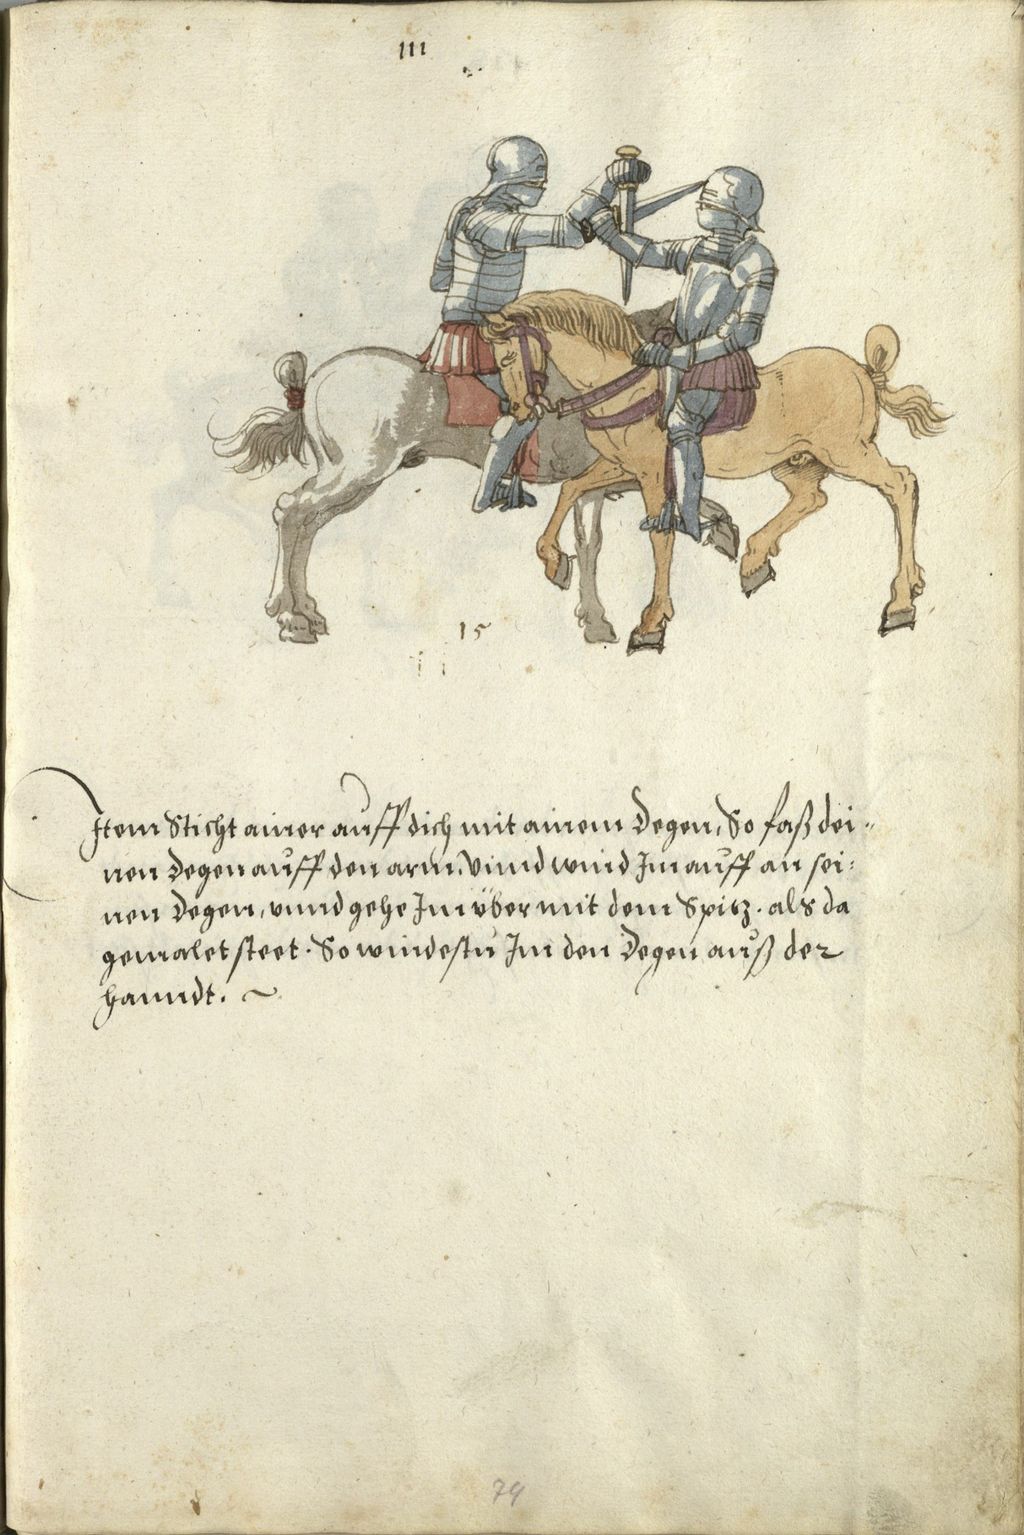 III
15
Item Sticht ainer auff dich mit ainem Degen, So faß dei=
nen Degen auff den arm, vnnd wind Im auff an sei=
nen Degen, vnnd gehe Im vber mit dem Spitz. als da
gemalet steet. So windestu Im den Degen auß der
hanndt.
79